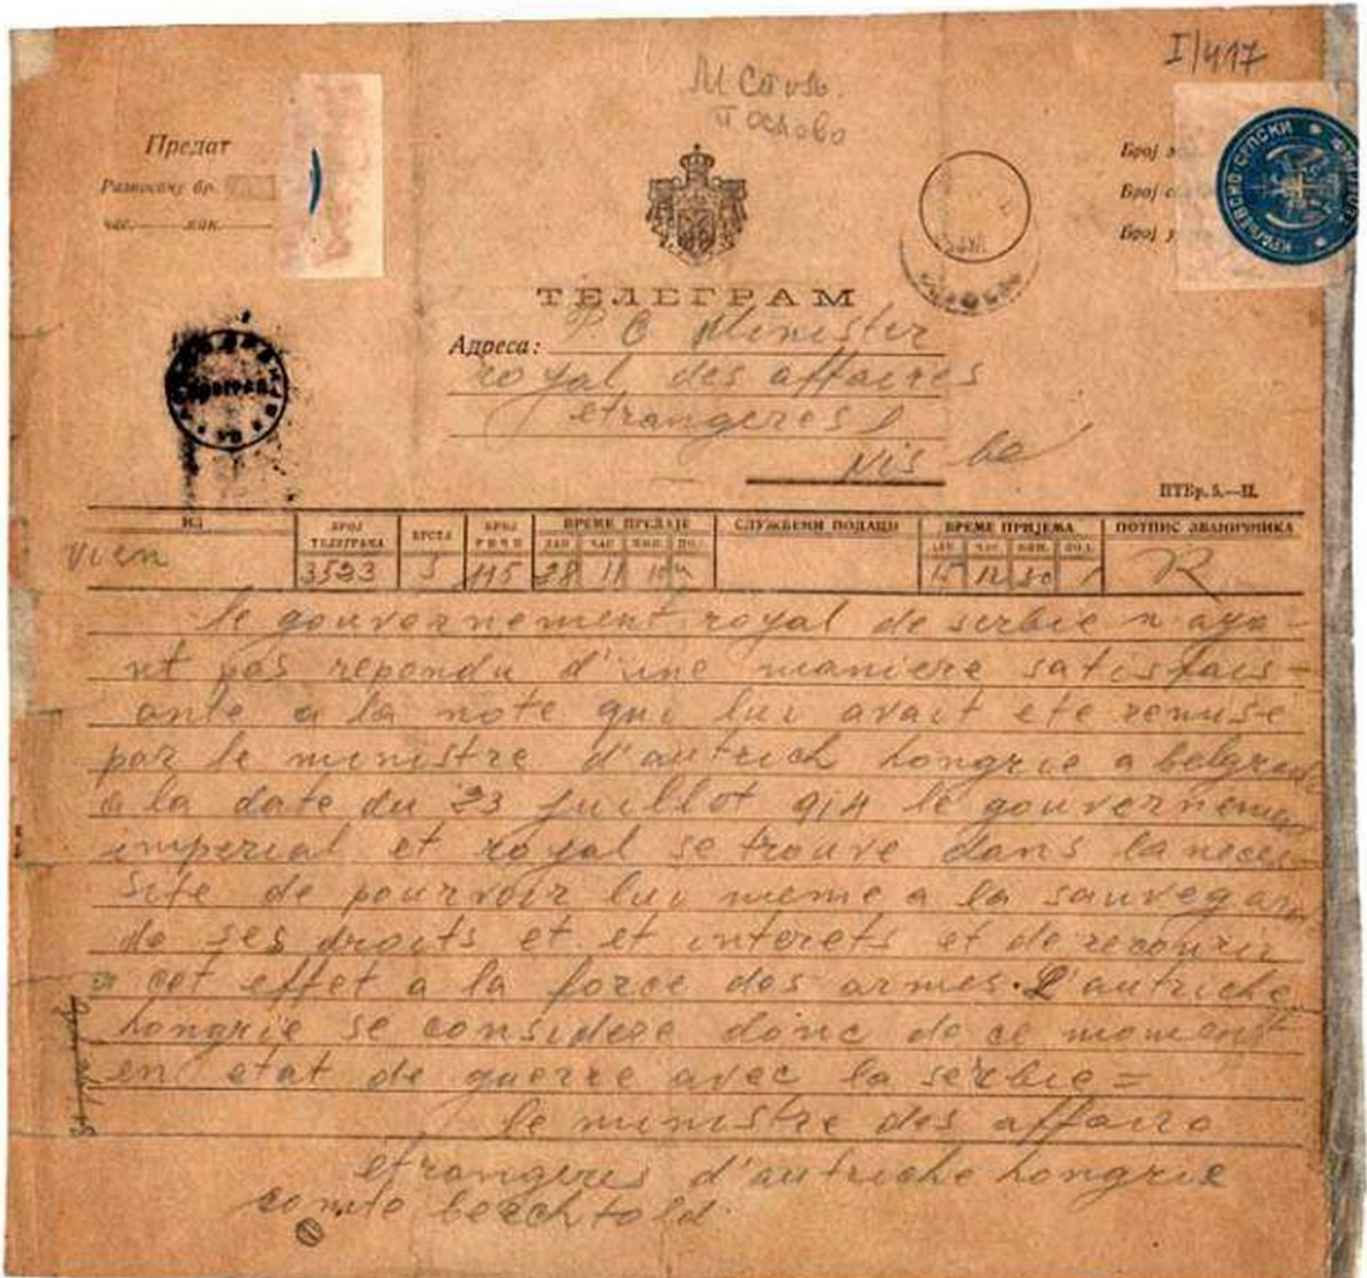 I/417
Предат
Разносачу бр.
час. мин.
Број
Број
Број
ТЕЛЕГРАМ
Адреса: P C Minister
royal des affaires
etrangeres
Nis
ПТБр. 5.—II.
ИЗ БРОЈ ТЕЛЕГРАМА ВРСТА БРОЈ РЕЧИ ВРЕМЕ ПРЕДАЈЕ СЛУЖБЕНИ ПОДАЦИ ВРЕМЕ ПРИЈЕМА ПОТПИС ЗВАНИЧНИКА
ДАН ЧАС МИН. ПО. ДАН ЧАС МИН. ПО.
Vien 3523 115 28 11 12 30 R
le gouvernement royal de serbie n aya-
nt pas repondu d'une maniere satisfais-
ante a la note qui lui avait ete remise
par le ministre d'autrich hongrie a belgrade
a la date du 23 juillot 914 le gouvernement
imperial et royal se trouve dans la neces-
site de pourvoir lui meme a la sauvegar
de ses droits et et interets et de recourir
a cet effet a la force des armes. L'autriche
hongrie se considere donc de ce moment
en etat de guerre avec la serbie =
le ministre des affairo
etrangeres d'autriche hongrie
comte berchtold